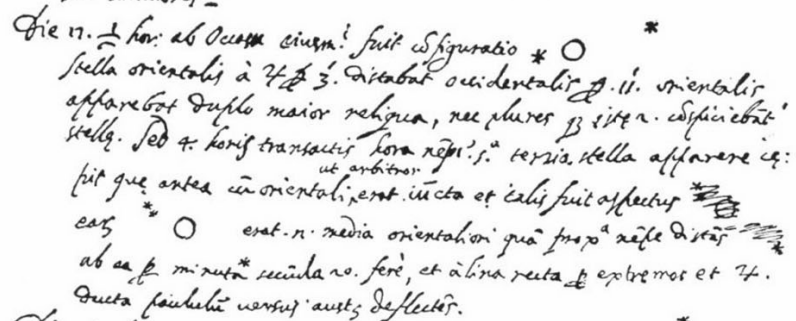 Die 11. ½ hor: ab Occasu eiusm.ͥ fuit cōfiguratio * O *
stella orientalis à ♃ ꝑ 3́. distabat occidentalis ꝑ .11́. orientalis
apparebat duplo maior reliqua, nec plures istę 2. cōspiciebāt́
stellę. sed 4. horis transactis hora nēpe .5.ᵃ tertia stella apparere cę:
pit quę antea cū orientali, ut arbitror erat iūcta et talis fuit aspectus
* * O * erat .n. media orientaliori quā prop.ᵃ nēpe distās
ab ea ꝑ minuta secūda 20. ferè, et à linea recta ꝑ extremos et ♃.
ducta paululū versus deflectēs.